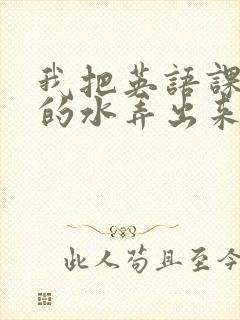 我把英語課
的水弄出來
此人苟且至今